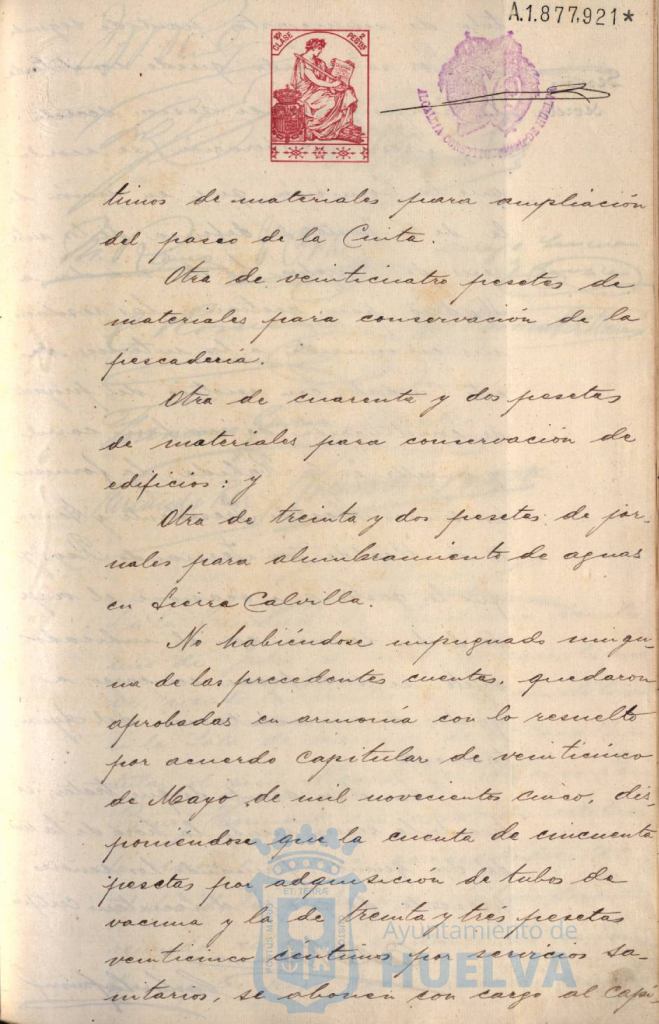 A.1.877,921*
CLASE
PESETAS
ALCALDIA CONSTITUCIONAL DE HUELVA
timos de materiales para ampliación
del paseo de la Cinta.
Otra de veinticuatro pesetas de
materiales para conservación de la
pescadería.
Otra de cuarenta y dos pesetas
de materiales para conservación de
edificios: y
Otra de treinta y dos pesetas de jor-
nales para alumbramiento de aguas
en Sierra Calvilla.
No habiéndose impugnado ningu-
na de las precedentes cuentas, quedaron
aprobadas en armonía con lo resuelto
por acuerdo capitular de veinticinco
de Mayo de mil novecientos cinco, dis-
poniéndose que la cuenta de cincuenta
pesetas por adquisición de tubos de
vacuna y la de treinta y tres pesetas
veinticinco céntimos por servicios sa-
nitarios, se abonen con cargo al capí-
Ayuntamiento de
HUELVA